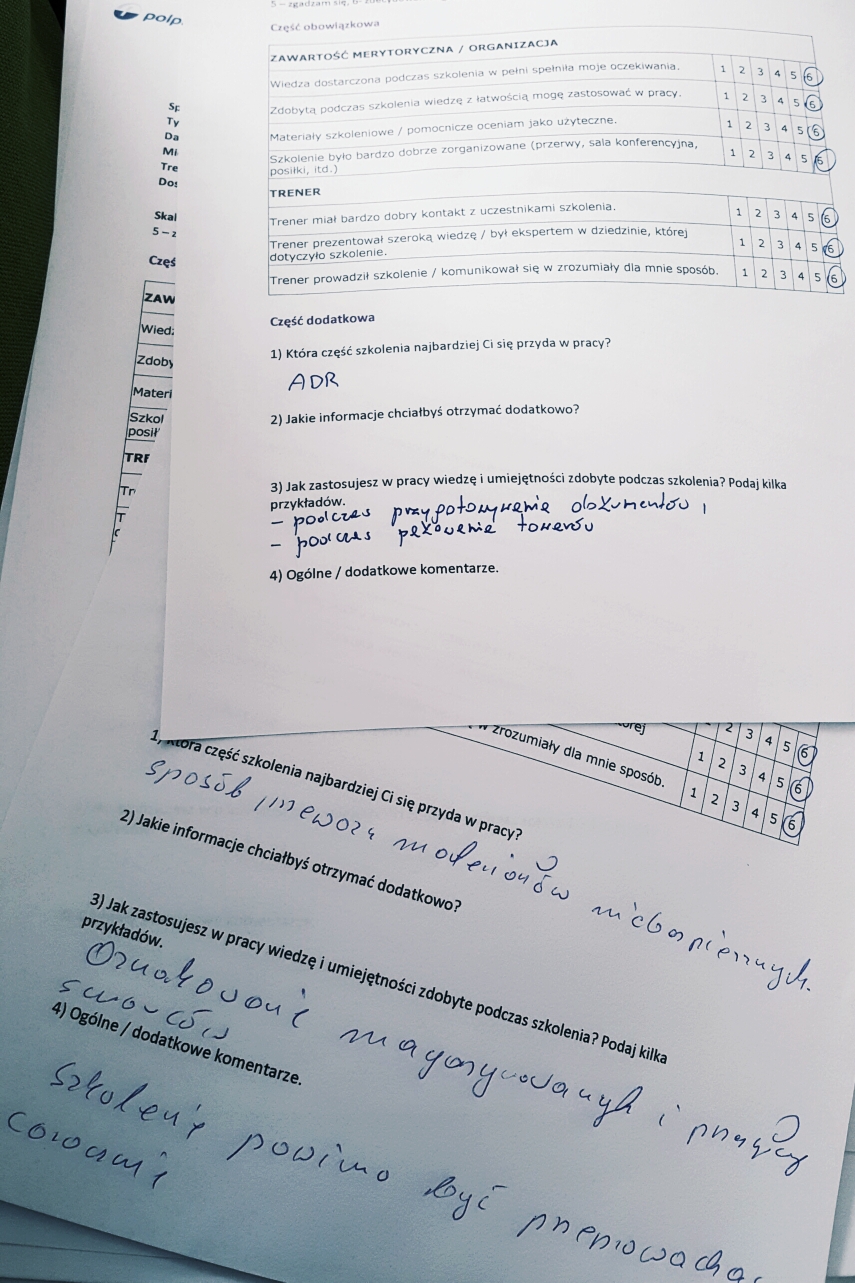 polp.
5 – zgadzam się, 6-
Część obowiązkowa
ZAWARTOŚĆ MERYTORYCZNA / ORGANIZACJA
Wiedza dostarczona podczas szkolenia w pełni spełniła moje oczekiwania. 1 2 3 4 5 6
Zdobytą podczas szkolenia wiedzę z łatwością mogę zastosować w pracy. 1 2 3 4 5 6
Materiały szkoleniowe / pomocnicze oceniam jako użyteczne. 1 2 3 4 5 6
Szkolenie było bardzo dobrze zorganizowane (przerwy, sala konferencyjna,
posiłki, itd.) 1 2 3 4 5 6
TRENER
Trener miał bardzo dobry kontakt z uczestnikami szkolenia. 1 2 3 4 5 6
Trener prezentował szeroką wiedzę / był ekspertem w dziedzinie, której
dotyczyło szkolenie. 1 2 3 4 5 6
Trener prowadził szkolenie / komunikował się w zrozumiały dla mnie sposób. 1 2 3 4 5 6
Część dodatkowa
1) Która część szkolenia najbardziej Ci się przyda w pracy?
ADR
2) Jakie informacje chciałbyś otrzymać dodatkowo?
3) Jak zastosujesz w pracy wiedzę i umiejętności zdobyte podczas szkolenia? Podaj kilka
przykładów.
– podczas przygotowywania dokumentów
– podczas pakowania towarów
4) Ogólne / dodatkowe komentarze.
Sp
Ty
Da
Mi
Tre
Dos
Skal
5 – z
Częś
ZAW
Wiedz
Zdoby
Materi
Szkol
posił
TRE
Tr
T
orej 1 2 3 4 5 6
w zrozumiały dla mnie sposób. 1 2 3 4 5 6
1 2 3 4 5 6
która część szkolenia najbardziej Ci się przyda w pracy?
sposób przewozu materiałów niebezpiecznych.
2) Jakie informacje chciałbyś otrzymać dodatkowo?
3) Jak zastosujesz w pracy wiedzę i umiejętności zdobyte podczas szkolenia? Podaj kilka
przykładów.
Oznakowanie magazynowanych i
surowców
4) Ogólne / dodatkowe komentarze.
Szkolenie powinno być